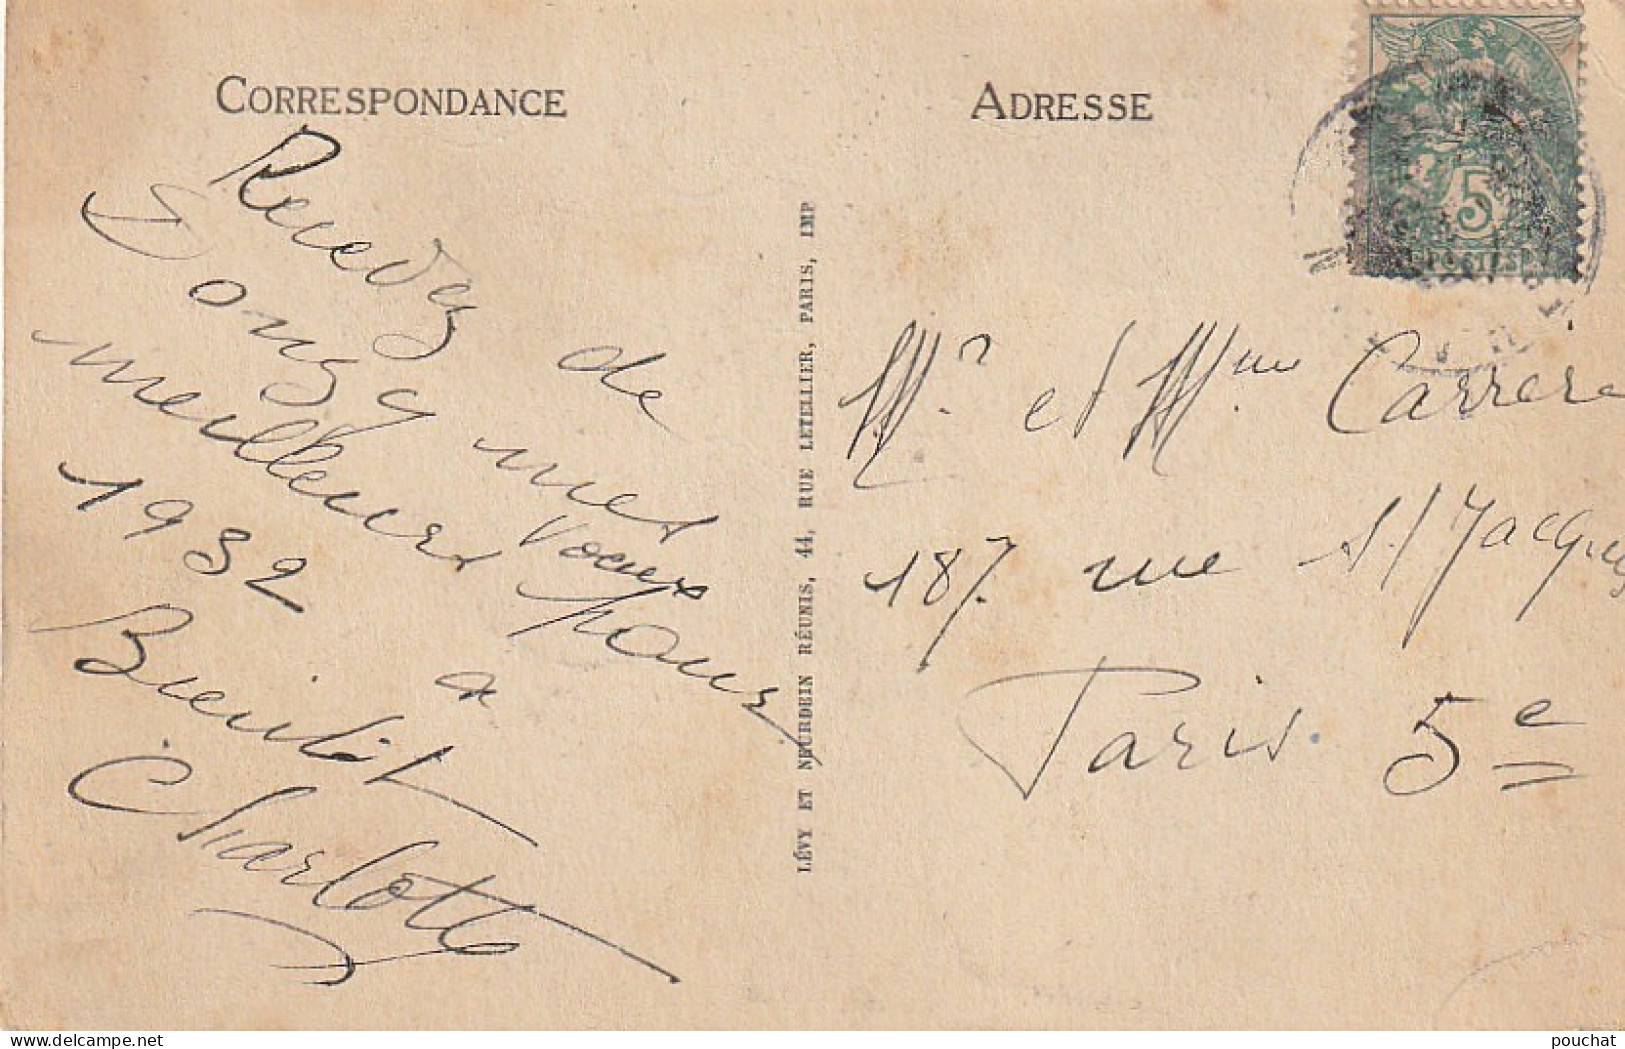 CORRESPONDANCE
Rendez de
Dongy mes
meilleurs Voeux
pour
1932
a
Bientôt
Charlotte
LÉVY ET NEURDEIN RÉUNIS, 44, RUE LETELLIER, PARIS, IMP
ADRESSE
5
POSTES
Mr et Mme Carrère
187 rue St Jacques
Paris 5e
pouchat